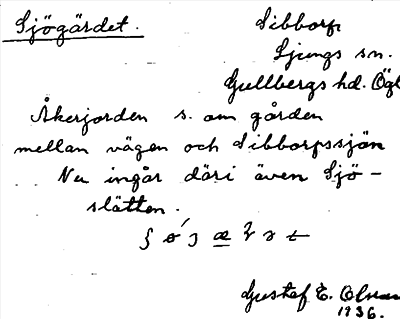 Sjögärdet.
Sibborp
Ljungs sn.
Gullbergs hd. Ögl
Åkerjorden s. om gården
mellan vägen och Sibborpssjön
Nu ingår däri även Sjö-
slätten.
Gustaf E. Olsson
1936.